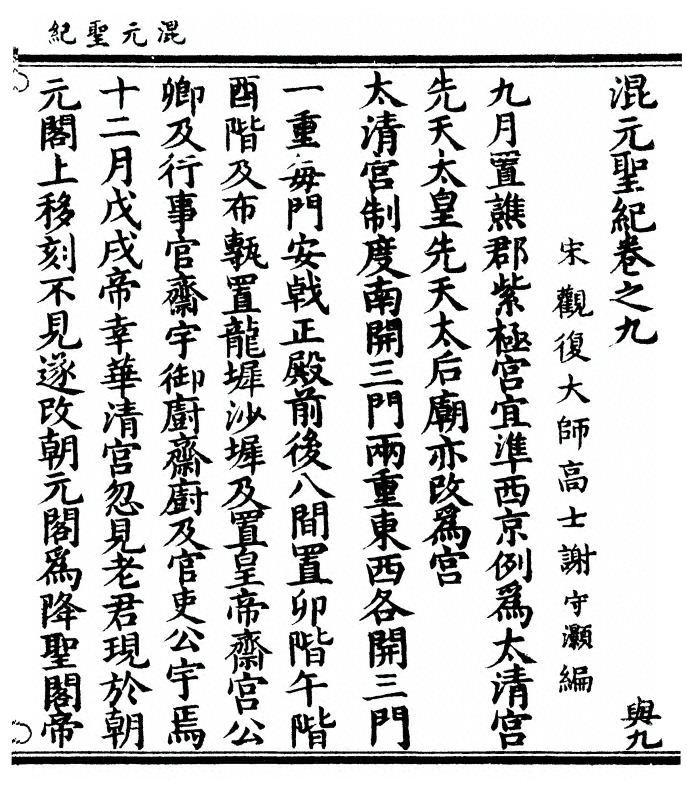 混元聖紀
混元聖紀卷之九
與九
宋觀復大師高士謝守灝編
九月置譙郡紫極宮宜準西京例爲太清宮
先天太皇先天太后廟亦改爲宮
太清宮制度南開三門兩重東西各開三門
一重每門安戟正殿前後八間置卯階午階
酉階及布甎置龍墀沙墀及置皇帝齋宮公
卿及行事官齋宇御廚齋廚及官吏公宇焉
十二月戊戌帝幸華清宮忽見老君現於朝
元閣上移刻不見遂改朝元閣爲降聖閣帝